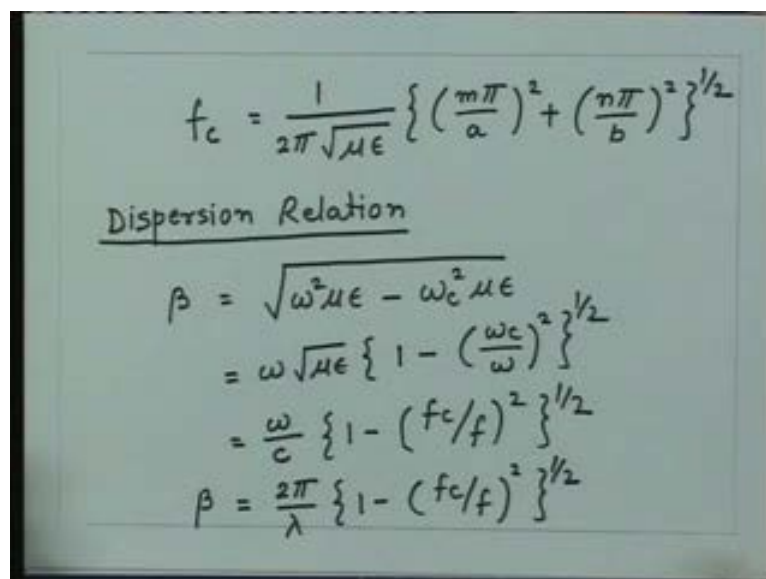 f_c = 1/(2π√με) {(mπ/a)² + (nπ/b)²}^1/2
Dispersion Relation
β = √(ω²με − ω_c²με)
= ω√με {1 − (ω_c/ω)²}^1/2
= ω/c {1 − (fc/f)²}^1/2
β = 2π/λ {1 − (fc/f)²}^1/2